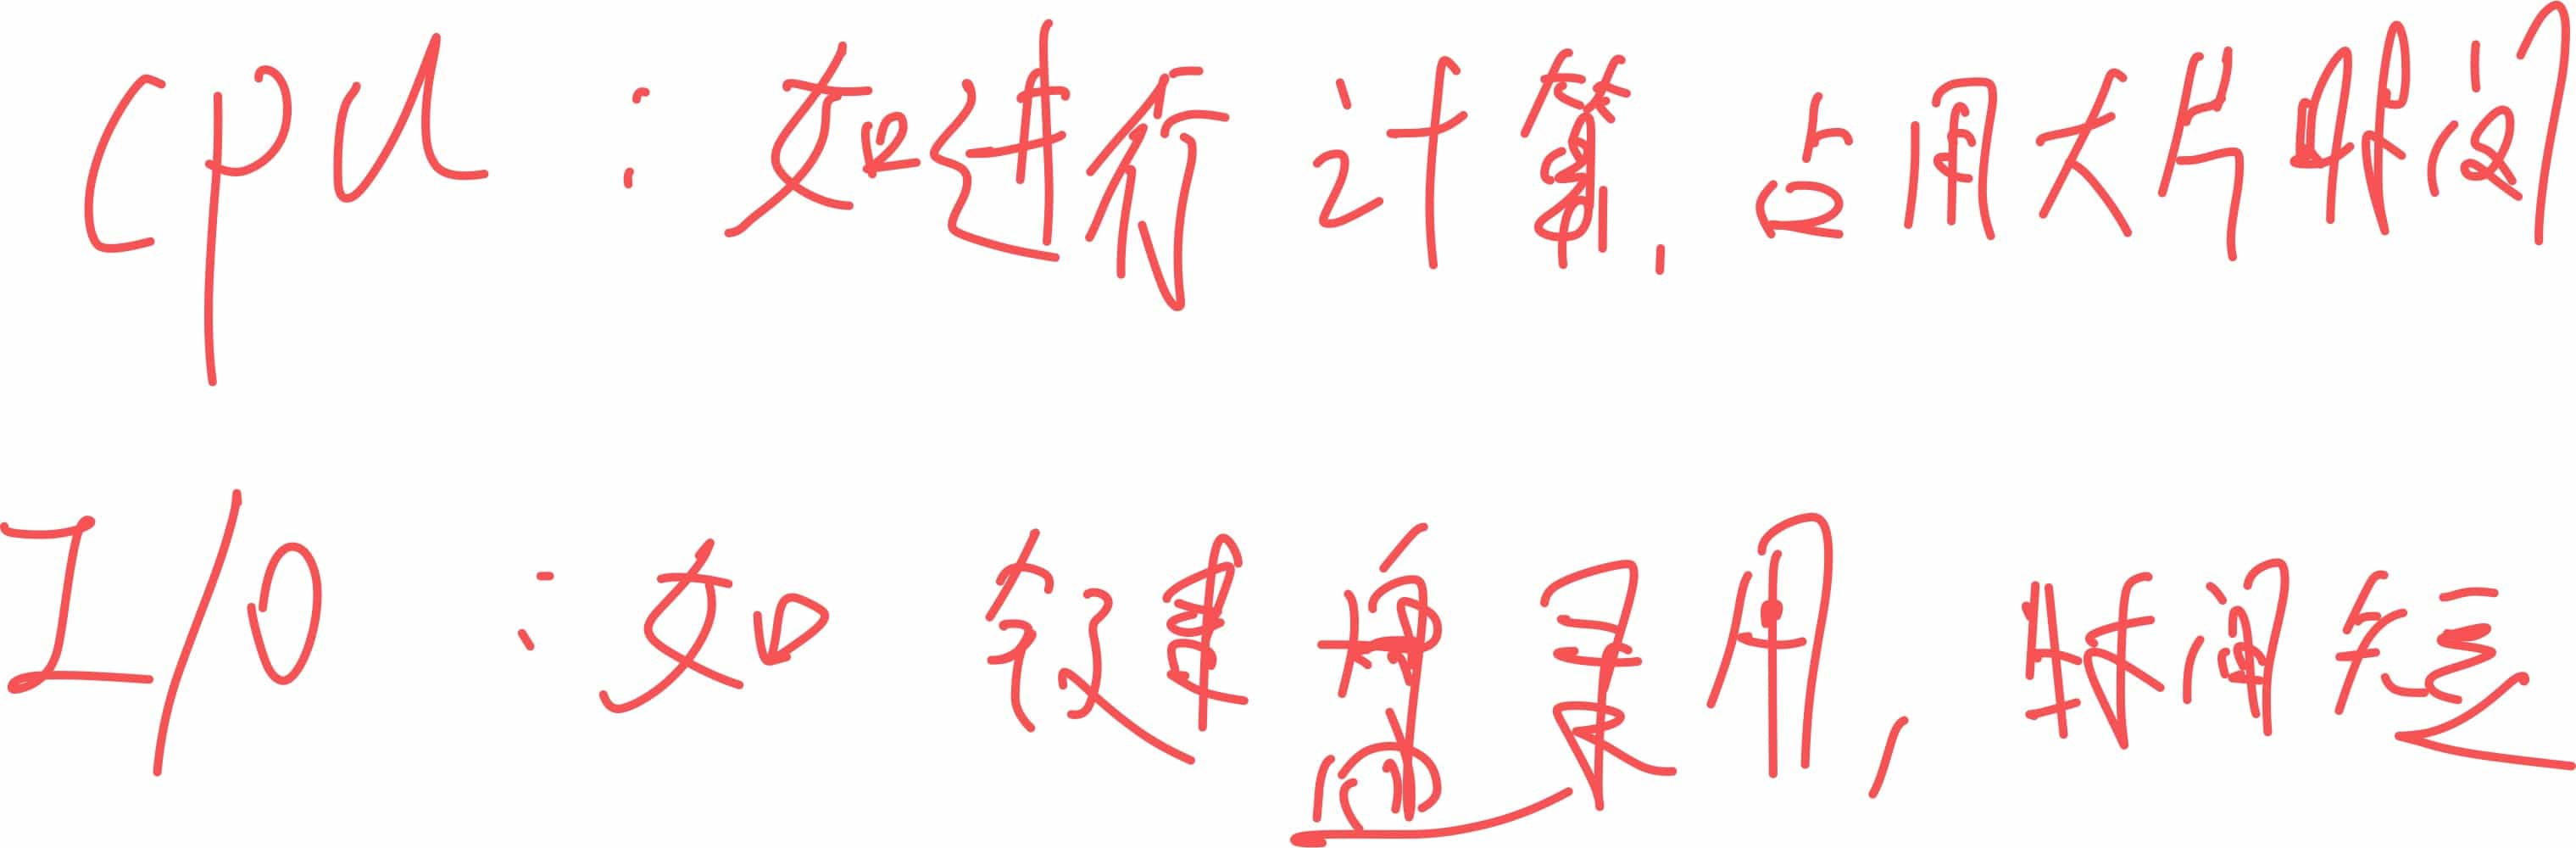 CPU：如进行计算，占用大片时间
I/O：如键盘录用，时间短